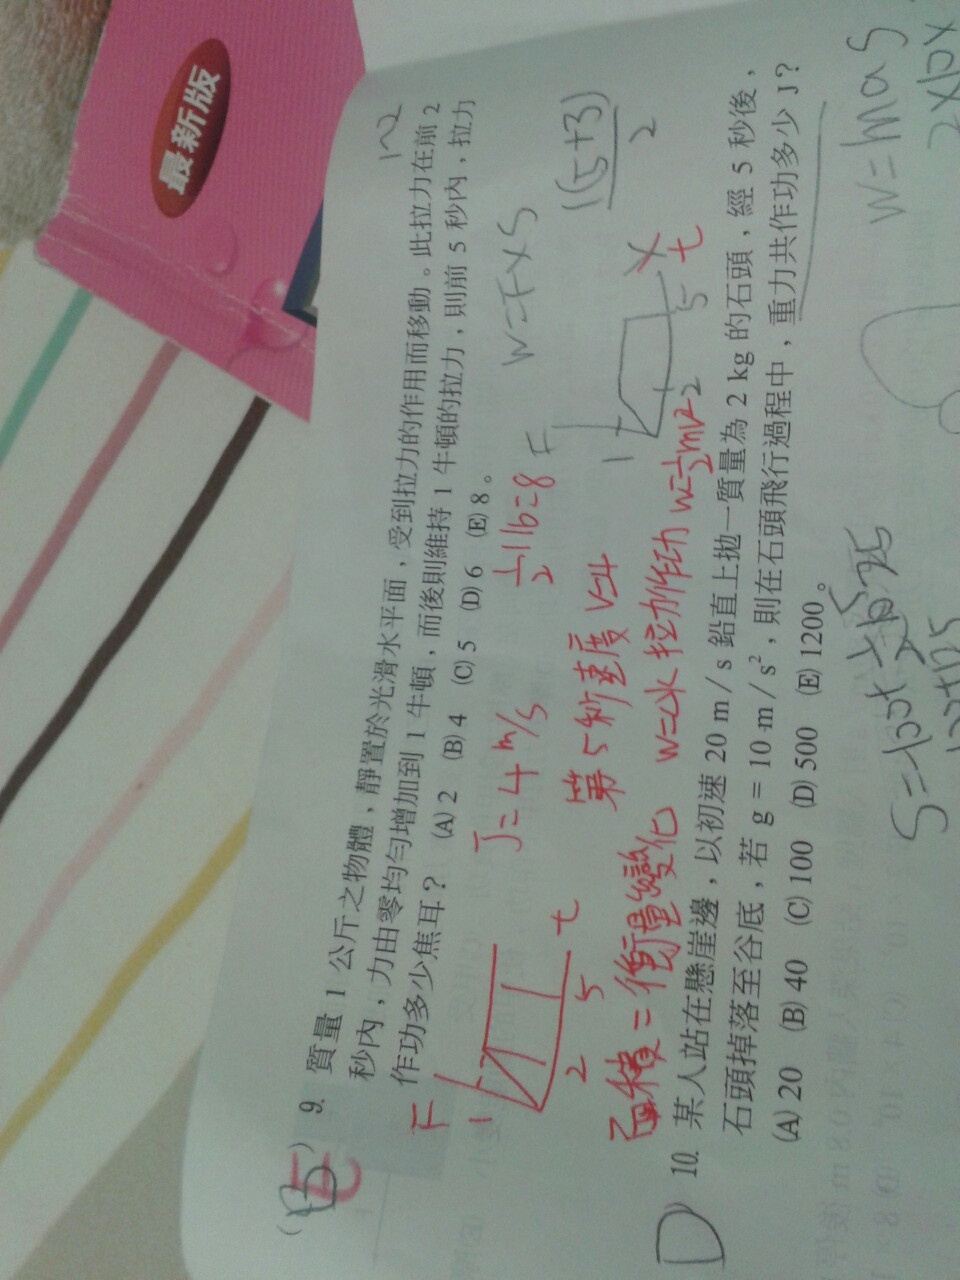 最新版
12
9. 質量 1 公斤之物體，靜置於光滑水平面，受到拉力的作用而移動。此拉力在前 2
秒內，力由零均勻增加到 1 牛頓，而後則維持 1 牛頓的拉力，則前 5 秒內，拉力
作功多少焦耳？ (A) 2 (B) 4 (C) 5 (D) 6 (E) 8。
E
F
1
2 5 t
J=4 m/s
½·1·16=8
W=F×S
F
1
2 5 t
(5+3)
2
第5秒速度 V=4
面積=衝量變化 W=ΔK 拉力作功 W=½mv²
D
10. 某人站在懸崖邊，以初速 20 m / s 鉛直上拋一質量為 2 kg 的石頭，經 5 秒後，
石頭掉落至谷底，若 g = 10 m / s²，則在石頭飛行過程中，重力共作功多少 J？
(A) 20 (B) 40 (C) 100 (D) 500 (E) 1200。
W=mas
2×10×